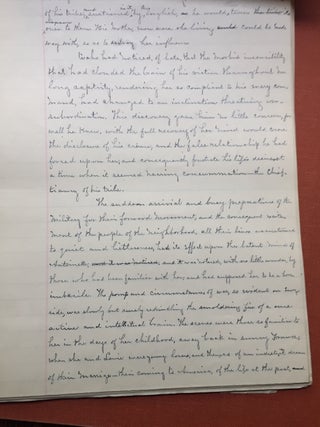 of his tribe, sustained, by, English, as he would,
over to them. His mother, now, were she living could be led
way with, so as to her influence
Waho had noticed, of late, that the morbid insensibility
that had clouded the brain of his victim throughout her
long captivity, rendering her so compliant to his every com-
mand, and changed to an inclination threatening in-
subordination. This discovery gave him no little concern, for
well he knew, with the full recovery of her mind would come
the disclosure of his crimes, and the false relationship he had
forced upon her, and consequently frustrate his life's dearest
a time when it seemed nearing consummation the Chief-
tiancy of his tribe.
The sudden arrival and busy preparations of the
Military for their forward movement, and the consequent excite-
ment of the people of the neighborhood, all their lives accustomed
to quiet and littleness, had its effect upon the latent mind of
Antoinette, and it was noticed, with no little wonder, by
those who had been familiar with her, and had supposed her to be a born
imbecile. The pomp and circumstance of war, so evident on every
side, were slowly but surely rekindling the smouldering fire of a once
active and intellectual brain. The scenes were those so familiar to
her in the days of her childhood, away back in sunny France,
when she and Louis were young lovers, and then, as of an indistinct dream
of their marriage their coming to America, of the life at the post, and